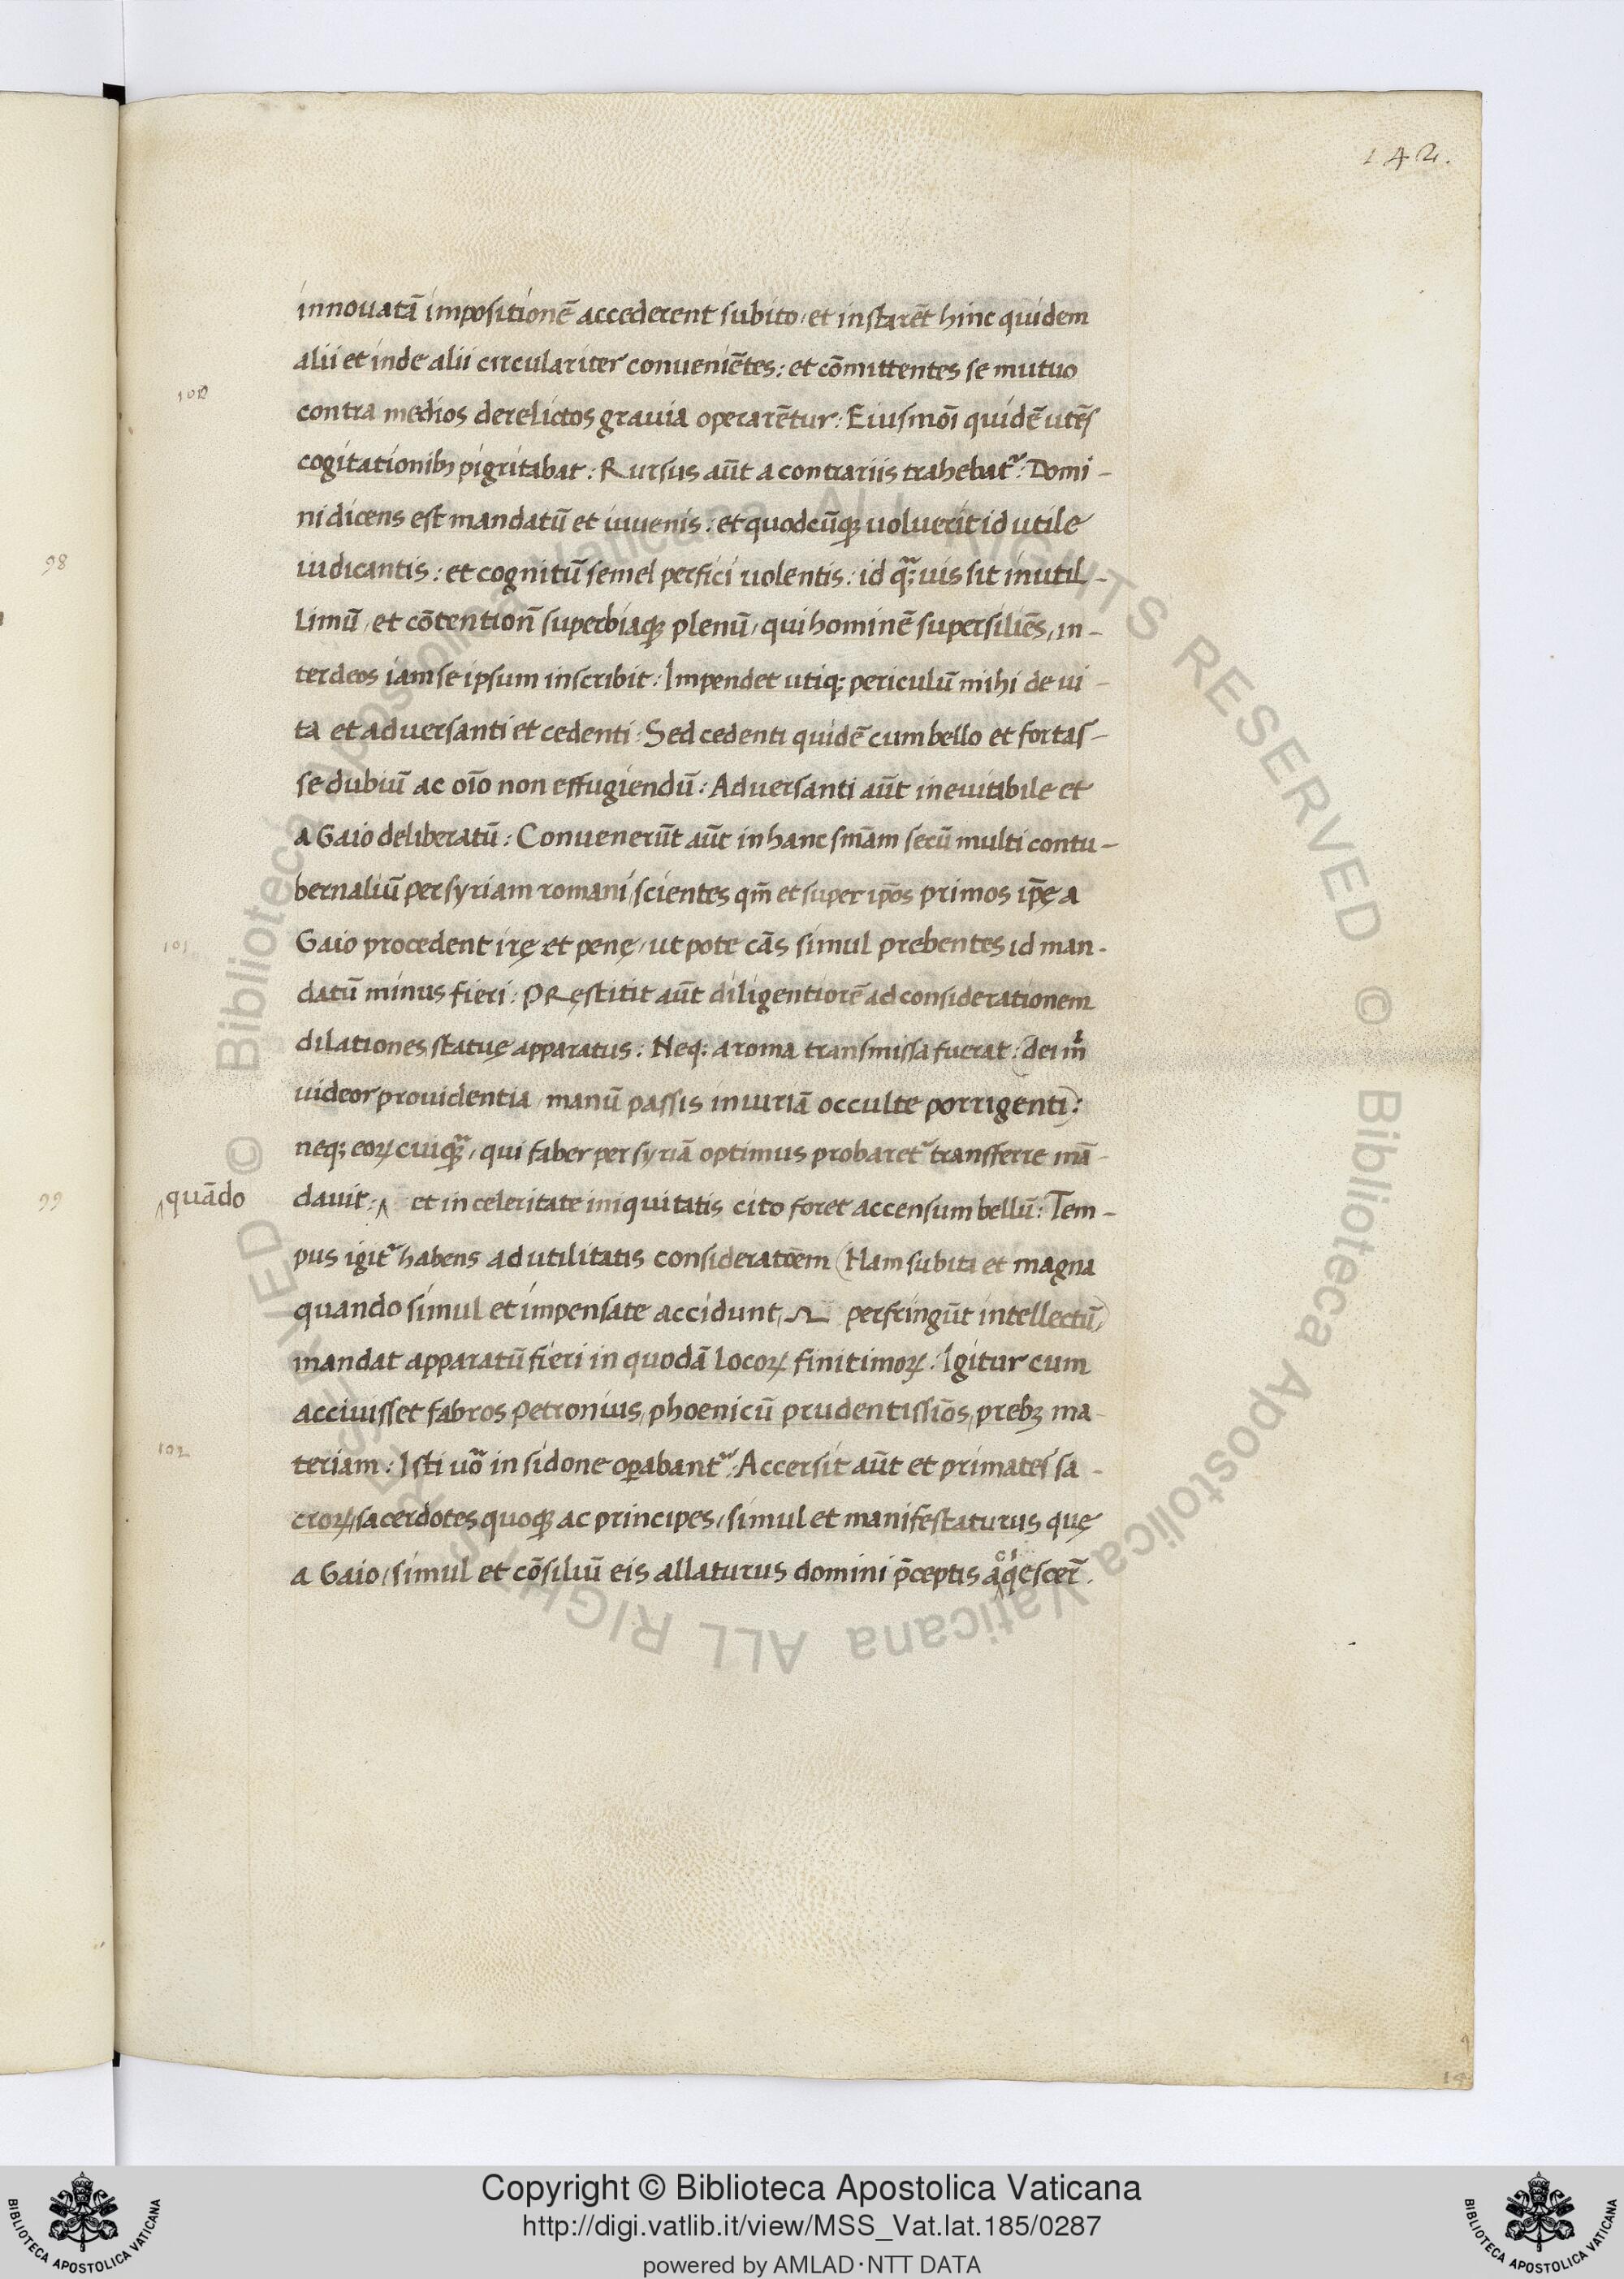 142.
innouatā impositionē accederent subito, et instarēt hinc quidem
alii et inde alii circulariter conueniētes: et cōmittentes se mutuo
100
contra medios derelictos grauia operarētur: Eiusmōi quidē utēs
cogitationibꝫ pigritabat: Rursus aūt a contrariis trahebat᷑: Domi-
ni dicens est mandatū et iuuenis: et quodcūqꝫ uoluerit id utile
98
iudicantis: et cognitū semel perfici uolentis: id qᷓꝫuis sit inutil-
limū, et cōtentionū superbiaqꝫ plenū, qui hominē supersiliēs, in-
ter deos iam se ipsum inscribit: Impendet utiqꝫ periculū mihi de ui-
ta et aduersanti et cedenti: Sed cedenti quidē cum bello et fortas-
se dubiū ac oīo non effugiendū: Aduersanti aūt ineuitabile et
a Gaio deliberatū: Conuenerūt aūt in hanc snīam secū multi contu-
bernaliū per syriam romani, scientes qm̄ et super ip̄os primos ip̄ę a
101
Gaio procedent irę et penę, ut pote cās simul prebentes id man-
datū minus fieri: PRęstitit aūt diligentiorē ad considerationem
dilationes statuę apparatus: Neqꝫ a roma transmissa fuerat: (dei m̄
uideor prouidentia, manū passis iniuriā occulte porrigenti):
neqꝫ eoꝝ cuiqᷓꝫ, qui faber per syriā optimus probaret᷑ transferre mā-
99
quādo
dauit: et in celeritate iniquitatis cito foret accensum bellū: Tem-
pus igit᷑ habens ad utilitatis consideratōem (Nam subita et magna
quando simul et impensate accidunt, perfringūt intellectū)
mandat apparatū fieri in quodā locoꝝ finitimoꝝ: Igitur cum
acciuisset fabros petronius, phoenicū prudentissīos, prebꝫ ma-
102
teriam: Isti uo᷑ in sidone oꝑabant᷑: Accersit aūt et primates sa-
croꝝ, sacerdotes quoqꝫ ac principes, simul et manifestaturus quę
a Gaio, simul et cōsiliū eis allaturus domini p̄ceptis acqiescer̄.
14
Copyright © Biblioteca Apostolica Vaticana
http://digi.vatlib.it/view/MSS_Vat.lat.185/0287
powered by AMLAD·NTT DATA
BIBLIOTECA APOSTOLICA VATICANA
BIBLIOTECA APOSTOLICA VATICANA
© Biblioteca Apostolica Vaticana ALL RIGHTS RESERVED
© Biblioteca Apostolica Vaticana ALL RIGHTS RESERVED